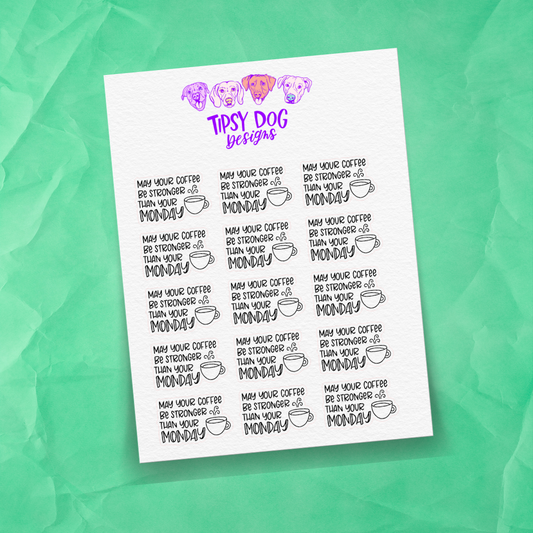 TIPSY DOG
Designs
MAY YOUR COFFEE
BE STRONGER
THAN YOUR
MONDAY
MAY YOUR COFFEE
BE STRONGER
THAN YOUR
MONDAY
MAY YOUR COFFEE
BE STRONGER
THAN YOUR
MONDAY
MAY YOUR COFFEE
BE STRONGER
THAN YOUR
MONDAY
MAY YOUR COFFEE
BE STRONGER
THAN YOUR
MONDAY
MAY YOUR COFFEE
BE STRONGER
THAN YOUR
MONDAY
MAY YOUR COFFEE
BE STRONGER
THAN YOUR
MONDAY
MAY YOUR COFFEE
BE STRONGER
THAN YOUR
MONDAY
MAY YOUR COFFEE
BE STRONGER
THAN YOUR
MONDAY
MAY YOUR COFFEE
BE STRONGER
THAN YOUR
MONDAY
MAY YOUR COFFEE
BE STRONGER
THAN YOUR
MONDAY
MAY YOUR COFFEE
BE STRONGER
THAN YOUR
MONDAY
MAY YOUR COFFEE
BE STRONGER
THAN YOUR
MONDAY
MAY YOUR COFFEE
BE STRONGER
THAN YOUR
MONDAY
MAY YOUR COFFEE
BE STRONGER
THAN YOUR
MONDAY